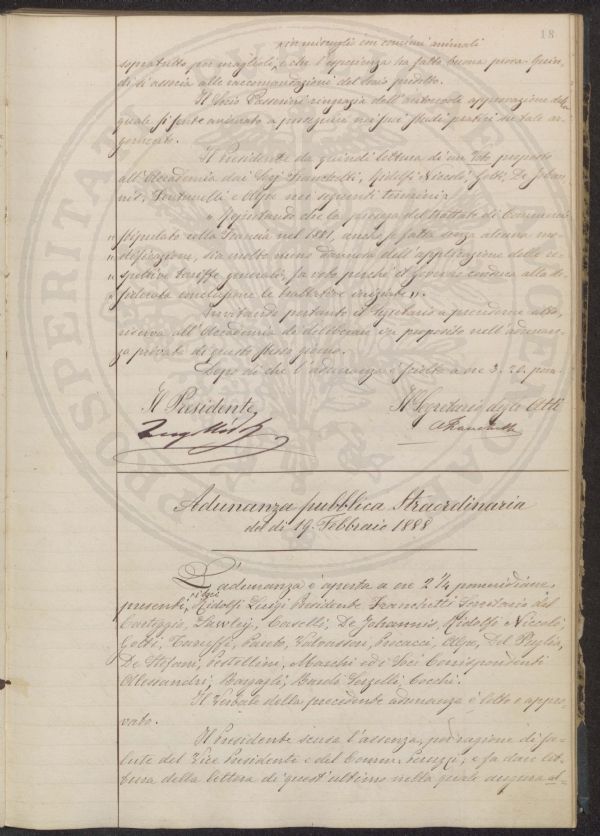 18
per miscugli con concimi animali
sopratutto per maglioli, e che l'esperienza ha fatto buona prova. Quin-
di si associa alle raccomandazioni del Socio predetto.
Il Socio Passerini ringrazia dell'autorevole approvazione della
quale si sente animato a proseguire nei suoi studi pratici su tale ar-
gomento.
Il Presidente dà quindi lettura di un Voto proposto
all'Accademia dai Sigg. Franchetti, Ridolfi Niccolò, Gotti, De Johan-
nis, Fontanelli e Alpe nei seguenti termini:
" Reputando che la proroga del Trattato di Commercio
" stipulato colla Francia nel 1881, anche se fatta senza alcuna mo-
" dificazione, sia molto meno dannosa dell'applicazione delle re-
" spettive tariffe generali, fa voto perché il Governo conduca alla de-
" siderata conclusione le trattative iniziate ".
Invitando pertanto il Segretario a prenderne atto,
riserva all'Accademia di deliberare in proposito nell'adunan-
za privata di questo stesso giorno.
Dopo di che l'adunanza è sciolta a ore 3.20. pom.
Il Presidente
Il Segretario degli Atti
Luigi Ridolfi
Adunanza pubblica Straordinaria
del dì 19. Febbraio 1888
L'adunanza è aperta a ore 2 1/4 pomeridiane,
presenti, i Soci Ridolfi Luigi Presidente Franchetti Segretario del
Carteggio, Caselli, De Johannis, Ridolfi Niccolò,
Gotti, Pareto, Valvassori, Pucacci, Alpe, Del Puglia,
De Stefani, Pestellini, Marchi ed i Soci Corrispondenti
Alessandri, Bargagli, Bardi Serzelli, Cocchi.
Il Verbale della precedente adunanza è letto e appro-
vato.
Il Presidente scusa l'assenza, per ragione di sa-
lute del Vice Presidente e del Comm. Peruzzi, e fa dare let-
tura della lettera di quest'ultimo nella quale augura al-
PROSPERITATI